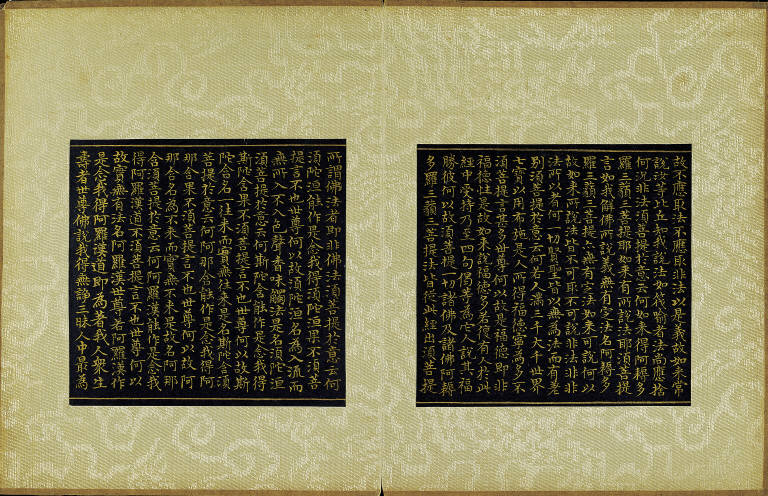 故不應取法不應取非法以是義故如來常
說汝等比丘知我說法如筏喻者法尚應捨
何況非法須菩提於意云何如來得阿耨多
羅三藐三菩提耶如來有所說法耶須菩提
言如我解佛所說義無有定法名阿耨多
羅三藐三菩提亦無有定法如來可說何以
故如來所說法皆不可取不可說非法非非
法所以者何一切賢聖皆以無為法而有差
別須菩提於意云何若人滿三千大千世界
七寶以用布施是人所得福德寧為多不
須菩提言甚多世尊何以故是福德即非
福德性是故如來說福德多若復有人於此
經中受持乃至四句偈等為他人說其福
勝彼何以故須菩提一切諸佛及諸佛阿耨
多羅三藐三菩提法皆從此經出須菩提
所謂佛法者即非佛法須菩提於意云何
須陀洹能作是念我得須陀洹果不須菩
提言不也世尊何以故須陀洹名為入流而
無所入不入色聲香味觸法是名須陀洹
須菩提於意云何斯陀含能作是念我得
斯陀含果不須菩提言不也世尊何以故斯
陀含名一往來而實無往來是名斯陀含須
菩提於意云何阿那含能作是念我得阿
那含果不須菩提言不也世尊何以故阿
那含名為不來而實無不來是故名阿那
含須菩提於意云何阿羅漢能作是念我
得阿羅漢道不須菩提言不也世尊何以
故實無有法名阿羅漢世尊若阿羅漢作
是念我得阿羅漢道即為著我人眾生
壽者世尊佛說我得無諍三昧人中最為